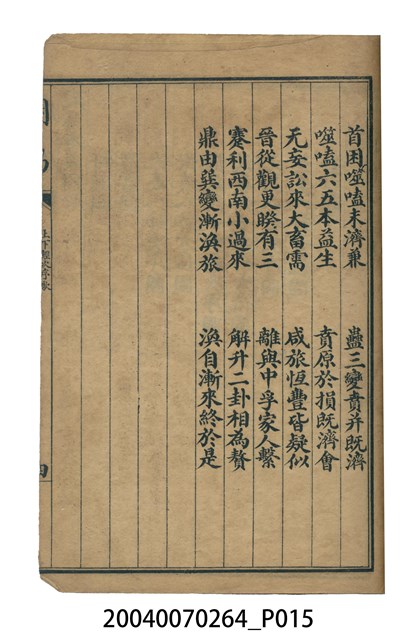 首困噬嗑未濟兼　蠱三變賁并既濟
噬嗑六五本益生　賁原於損既濟會
无妄訟來大畜需　咸旅恆豐皆疑似
晉從觀更睽有三　離與中孚家人繫
蹇利西南小過來　解升二卦相為贅
鼎由巽變漸渙旅　渙自漸來終於是
周易
上下經次序歌
四
20040070264_P015